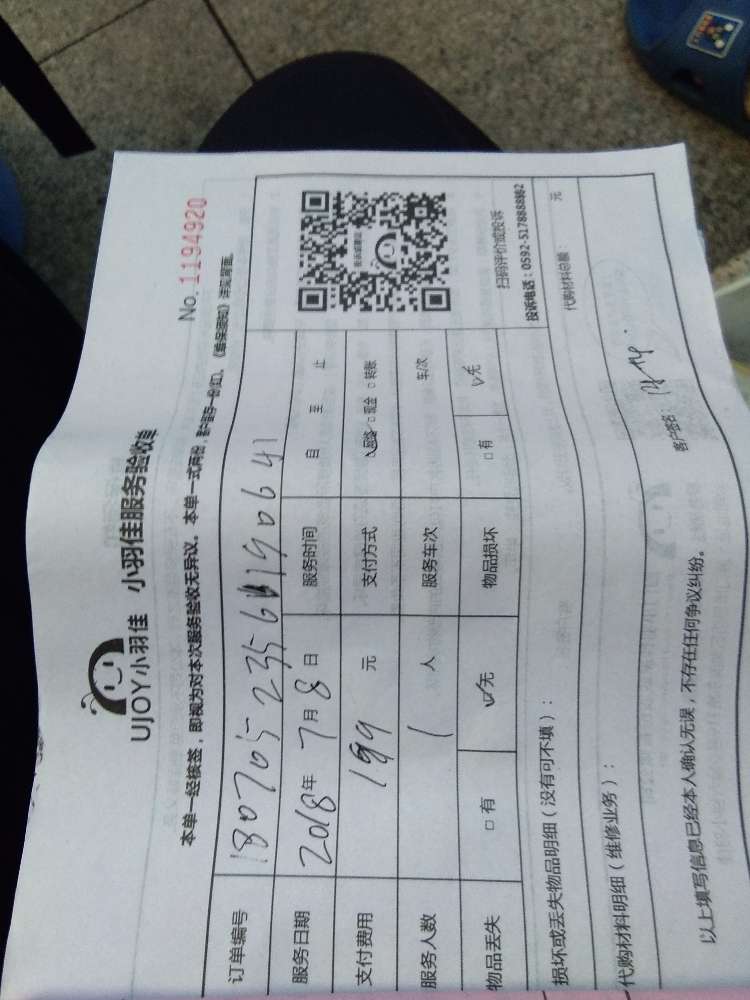 UJOY小羽佳 小羽佳服务验收单
No. 1194920
本单一经核签，即视为对本次服务验收无异议。本单一式两份，客户留存一份(红)。《维保须知》详见背面。
订单编号
服务日期 2018年 7月 8日 服务时间 自 至 止
支付费用 199 元 支付方式 网络 □ 现金 □ 转账
服务人数 1 人 服务车次 车/次
物品丢失 □ 有 ☑无 物品损坏 □ 有 ☑无
投诉或建议
扫码评价或投诉
投诉电话：0592-5178888转2
损坏或丢失物品明细（没有可不填）：
代购材料明细（维修业务）：
代购材料总额： 元
以上填写信息已经本人确认无误，不存在任何争议纠纷。
客户签名：